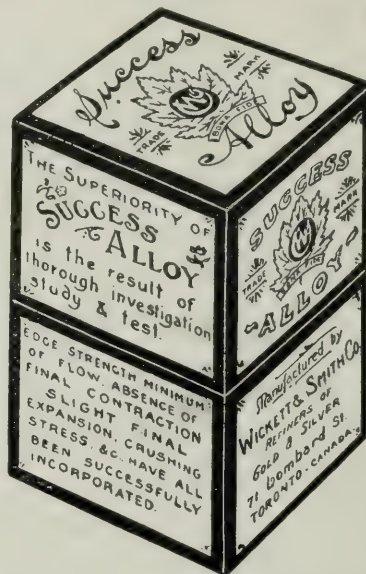 Success
TRADE
MARK
BONA FIDE
Alloy
THE SUPERIORITY OF
SUCCESS
ALLOY
is the result of
thorough investigation
study & test.
SUCCESS
TRADE
MARK
BONA FIDE
-ALLOY-
EDGE STRENGTH MINIMUM
OF FLOW. ABSENCE OF
FINAL CONTRACTION
SLIGHT FINAL
EXPANSION, CRUSHING
STRESS, &C. HAVE ALL
BEEN SUCCESSFULLY
INCORPORATED.
Manufactured by
WICKETT & SMITH CO.
REFINERS OF
GOLD & SILVER
71 Lombard St.
TORONTO - CANADA.